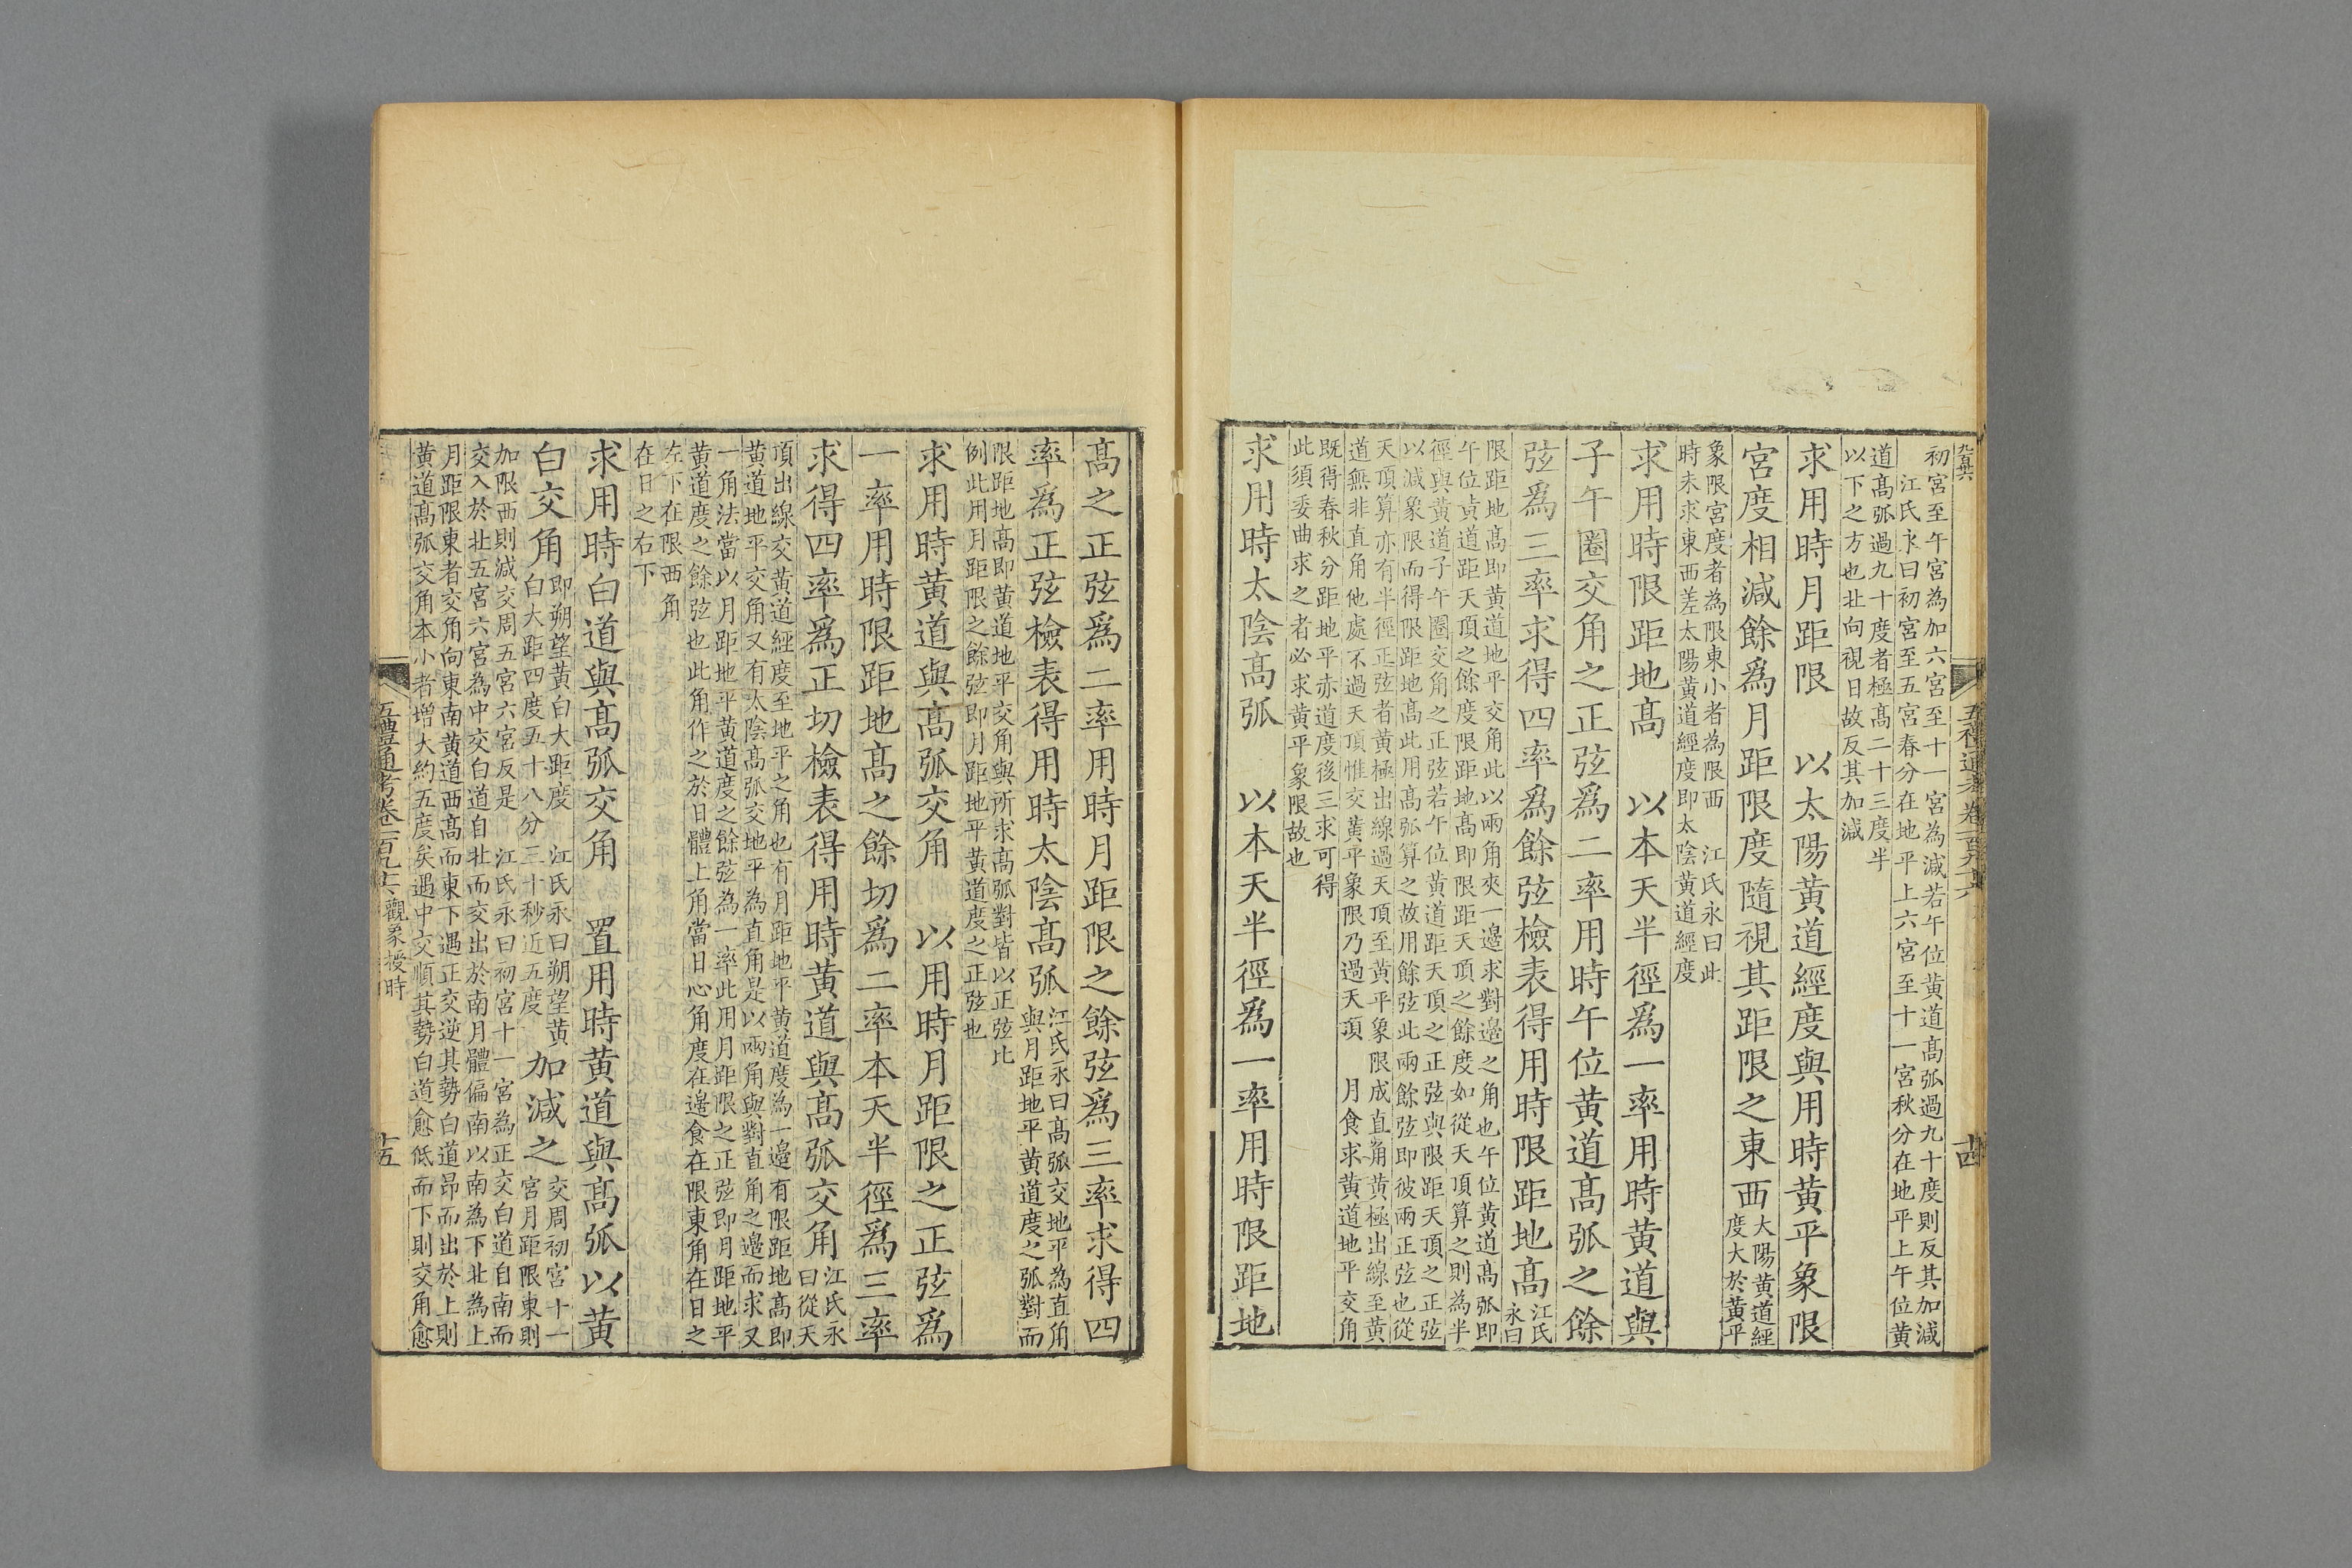 初宮至午宮為加六宮至十一宮為減若午位黃道高弧過九十度則反其加減
江氏永曰初宮至五宮春分在地平上六宮至十一宮秋分在地平上午位黃
道高弧過九十度者極高二十三度半
以下之方也北向視日故反其加減
求用時月距限　以太陽黃道經度與用時黃平象限
宮度相減餘爲月距限度隨視其距限之東西
太陽黃道經
度大於黃平
象限宮度者為限東小者為限西　江氏永曰此
時未求東西差太陽黃道經度即太陰黃道經度
求用時限距地高　以本天半徑爲一率用時黃道與
子午圈交角之正弦爲二率用時午位黃道高弧之餘
弦爲三率求得四率爲餘弦檢表得用時限距地高
江氏
永曰
限距地高即黃道地平交角此以兩角夾一邊求對邊之角也午位黃道高弧即
午位黃道距天頂之餘度限距地高即限距天頂之餘度如從天頂算之則為半
徑與黃道子午圈交角之正弦若午位黃道距天頂之正弦與限距天頂之正弦
以減象限而得限距地高此用高弧算之故用餘弦此兩餘弦即彼兩正弦也從
天頂算亦有半徑正弦者黃極出線過天頂至黃平象限成直角黃極出線至黃
道無非直角他處不過天頂惟交黃平象限乃過天頂　月食求黃道地平交角
既得春秋分距地平赤道度後三求可得
此須委曲求之者必求黃平象限故也
求用時太陰高弧　以本天半徑爲一率用時限距地
五禮通考卷一百九十六
十四
高之正弦爲二率用時月距限之餘弦爲三率求得四
率爲正弦檢表得用時太陰高弧
江氏永曰高弧交地平為直角
與月距地平黃道度之弧對而
限距地高即黃道地平交角與所求高弧對皆以正弦比
例此用月距限之餘弦即月距地平黃道度之正弦也
求用時黃道與高弧交角　以用時月距限之正弦爲
一率用時限距地高之餘切爲二率本天半徑爲三率
求得四率爲正切檢表得用時黃道與高弧交角
江氏永
曰從天
頂出線交黃道經度至地平之角也有月距地平黃道度為一邊有限距地高即
黃道地平交角又有太陰高弧交地平為直角是以兩角與對直角之邊而求又
一角法當以月距地平黃道度之餘弦為一率此用月距限之正弦即月距地平
黃道度之餘弦也此角作之於日體上角當日心角度在邊食在限東角在日之
左下在限西角
在日之右下
求用時白道與高弧交角　置用時黃道與高弧以黃
白交角
即朔望黃白大距度　江氏永曰朔望黃
白大距四度五十八分三十秒近五度
加減之
交周初宮十一
宮月距限東則
加限西則減交周五宮六宮反是　江氏永曰初宮十一宮為正交白道自南而
交入於北五宮六宮為中交白道自北而交出於南月體偏南以南為下北為上
月距限東者交角向東南黃道西高而東下遇正交逆其勢白道昂而出於上則
黃道高弧交角本小者增大約五度矣遇中交順其勢白道愈低而下則交角愈
五禮通考卷一百九十六　觀象授時
十五